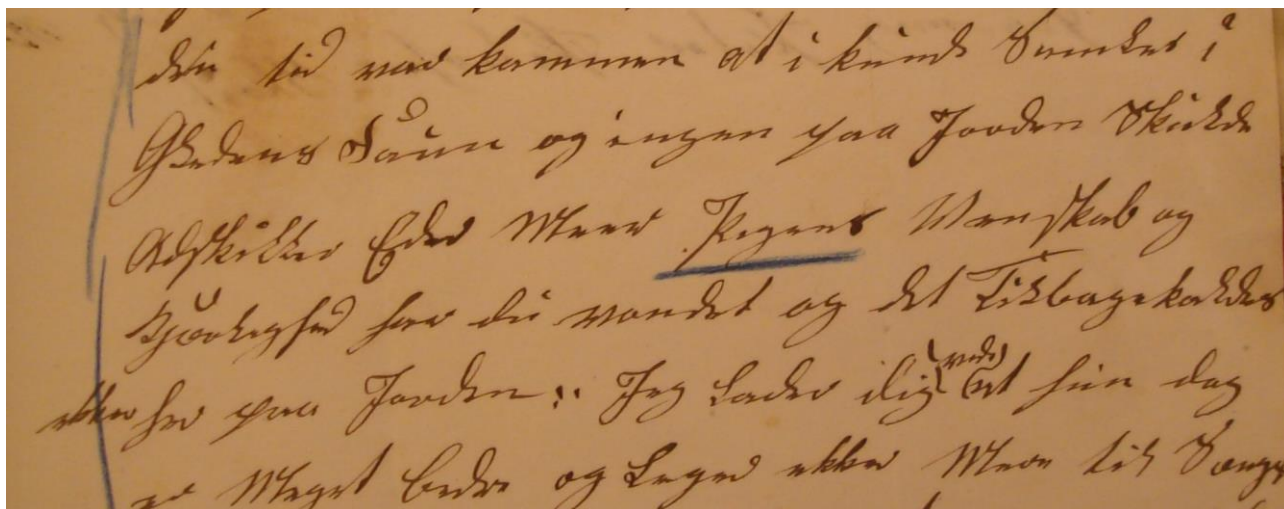 den tid var kommen at i kunde Samles i
Glædens Faun og ingen paa Jorden Skulde
Adskille Eder Meer Pigens Venskab og
Kjærlighed har du vondet og det Tilbagekaldes
ikke her paa Jorden :. Jeg Lader dig (vide) at hun dag
er Meget bedre og Leger ikke Mere til Sengs